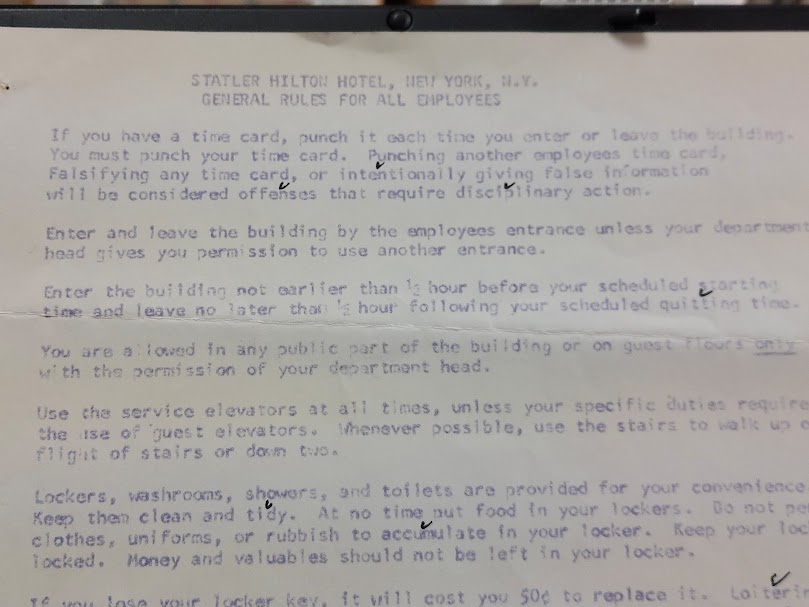 STATLER HILTON HOTEL, NEW YORK, N.Y.
GENERAL RULES FOR ALL EMPLOYEES
If you have a time card, punch it each time you enter or leave the building.
You must punch your time card. Punching another employees time card,
Falsifying any time card, or intentionally giving false information
will be considered offenses that require disciplinary action.
Enter and leave the building by the employees entrance unless your department
head gives you permission to use another entrance.
Enter the building not earlier than ½ hour before your scheduled starting
time and leave no later than ½ hour following your scheduled quitting time.
You are allowed in any public part of the building or on guest floors only
with the permission of your department head.
Use the service elevators at all times, unless your specific duties require
the use of guest elevators. Whenever possible, use the stairs to walk up o
flight of stairs or down two.
Lockers, washrooms, showers, and toilets are provided for your convenience
Keep them clean and tidy. At no time put food in your lockers. Do not pe
clothes, uniforms, or rubbish to accumulate in your locker. Keep your loc
locked. Money and valuables should not be left in your locker.
If you lose your locker key, it will cost you 50¢ to replace it. Loiterin